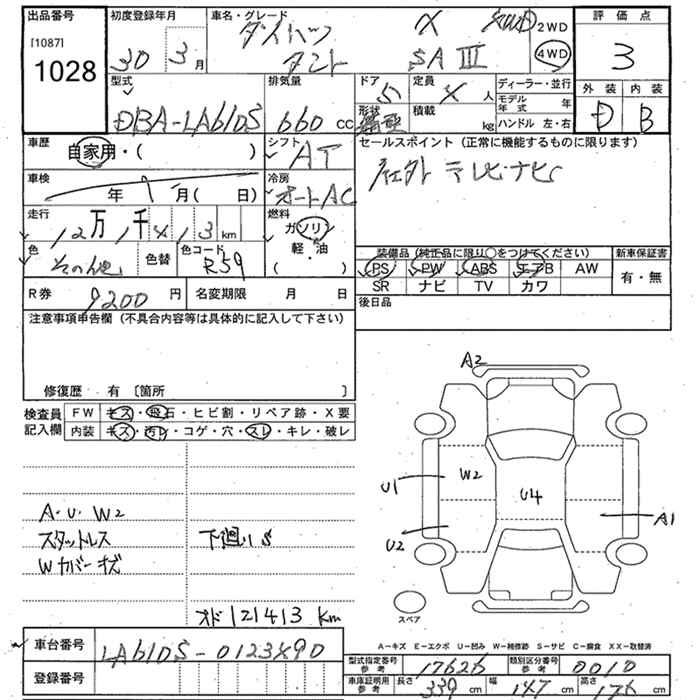 出品番号 初度登録年月 車名・グレード 評価点
[1087] ダイハツ X 4WD 2WD
1028 30年 3月 タント SAⅢ 4WD 3
型式 排気量 ドア 定員 ディーラー・並行 外装 内装
DBA-LA610S 660cc 5 4人 モデル年式 年 D B
形状 積載 kg ハンドル 左・右
車歴 自家用・( ) シフト AT セールスポイント (正常に機能するものに限ります)
車検 年 月( 日) 冷房 オートAC 社外 テレビ・ナビ
走行 12万1千413km 燃料 ガソリン
色 その他 色替 色コード R59 軽・油 ( )
装備品 (純正品に限り○をつけてください) 新車保証書
PS PW ABS エアB AW 有・無
SR ナビ TV カワ
R券 9200円 名変期限 月 日 後日品
注意事項申告欄 (不具合内容等は具体的に記入して下さい)
修復歴 有 〔箇所 〕
検査員 FW キズ・飛石・ヒビ割・リペア跡・X要
記入欄 内装 キズ・汚レ・コゲ・穴・スレ・キレ・破レ
A2
U1 W2 U4 A1
U2
A・U・W2
スタットレス 下廻りS
Wカバーキズ
オド 121413 km
スペア
A－キズ E－エクボ U－凹み W－補修跡 S－サビ C－腐食 XX－取替済
車台番号 LA610S-0123490
登録番号
型式指定番号 参考 17626 類別区分番号 参考 0010
車庫証明用 参考 長さ 339 cm 幅 147 cm 高さ 176 cm